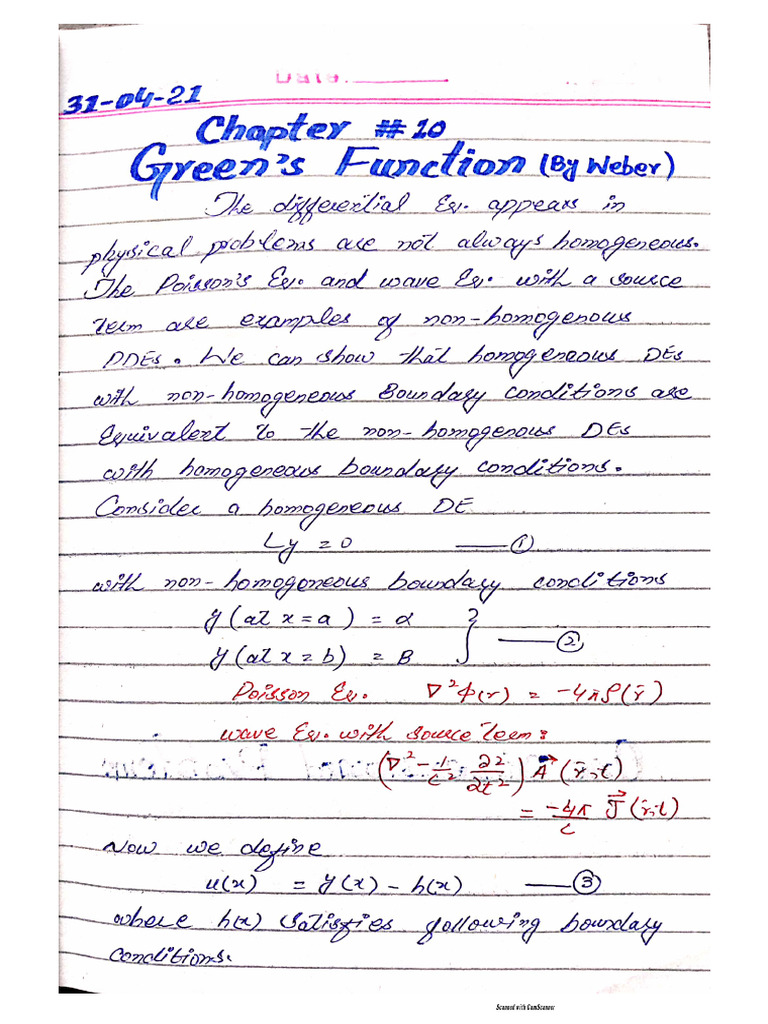 Date.
31-04-21
Chapter # 10
Green's Function (By Weber)
The differential Eq. appears in
physical problems are not always homogeneous.
The Poisson's Eq. and wave Eq. with a source
term are examples of non-homogenous
PDEs. We can show that homogeneous DEs
with non-homogeneous Boundary conditions are
Equivalent to the non-homogenous DEs
with homogeneous boundary conditions.
Consider a homogeneous DE
Ly = 0 —— ①
with non-homogoneous boundary conditions
y (at x = a) = α
y (at x = b) = B } —— ②
Poisson Eq. ∇²Φ(r) = -4πρ(r̄)
wave Eq. with source Term:
(∇² - 1/c² ∂²/∂t²) A⃗ (r̄, t)
= -4π/c J⃗ (r̄, t)
Now we define
u(x) = y(x) - h(x) —— ③
where h(x) satisfies following boundary
conditions.
Scanned with CamScanner